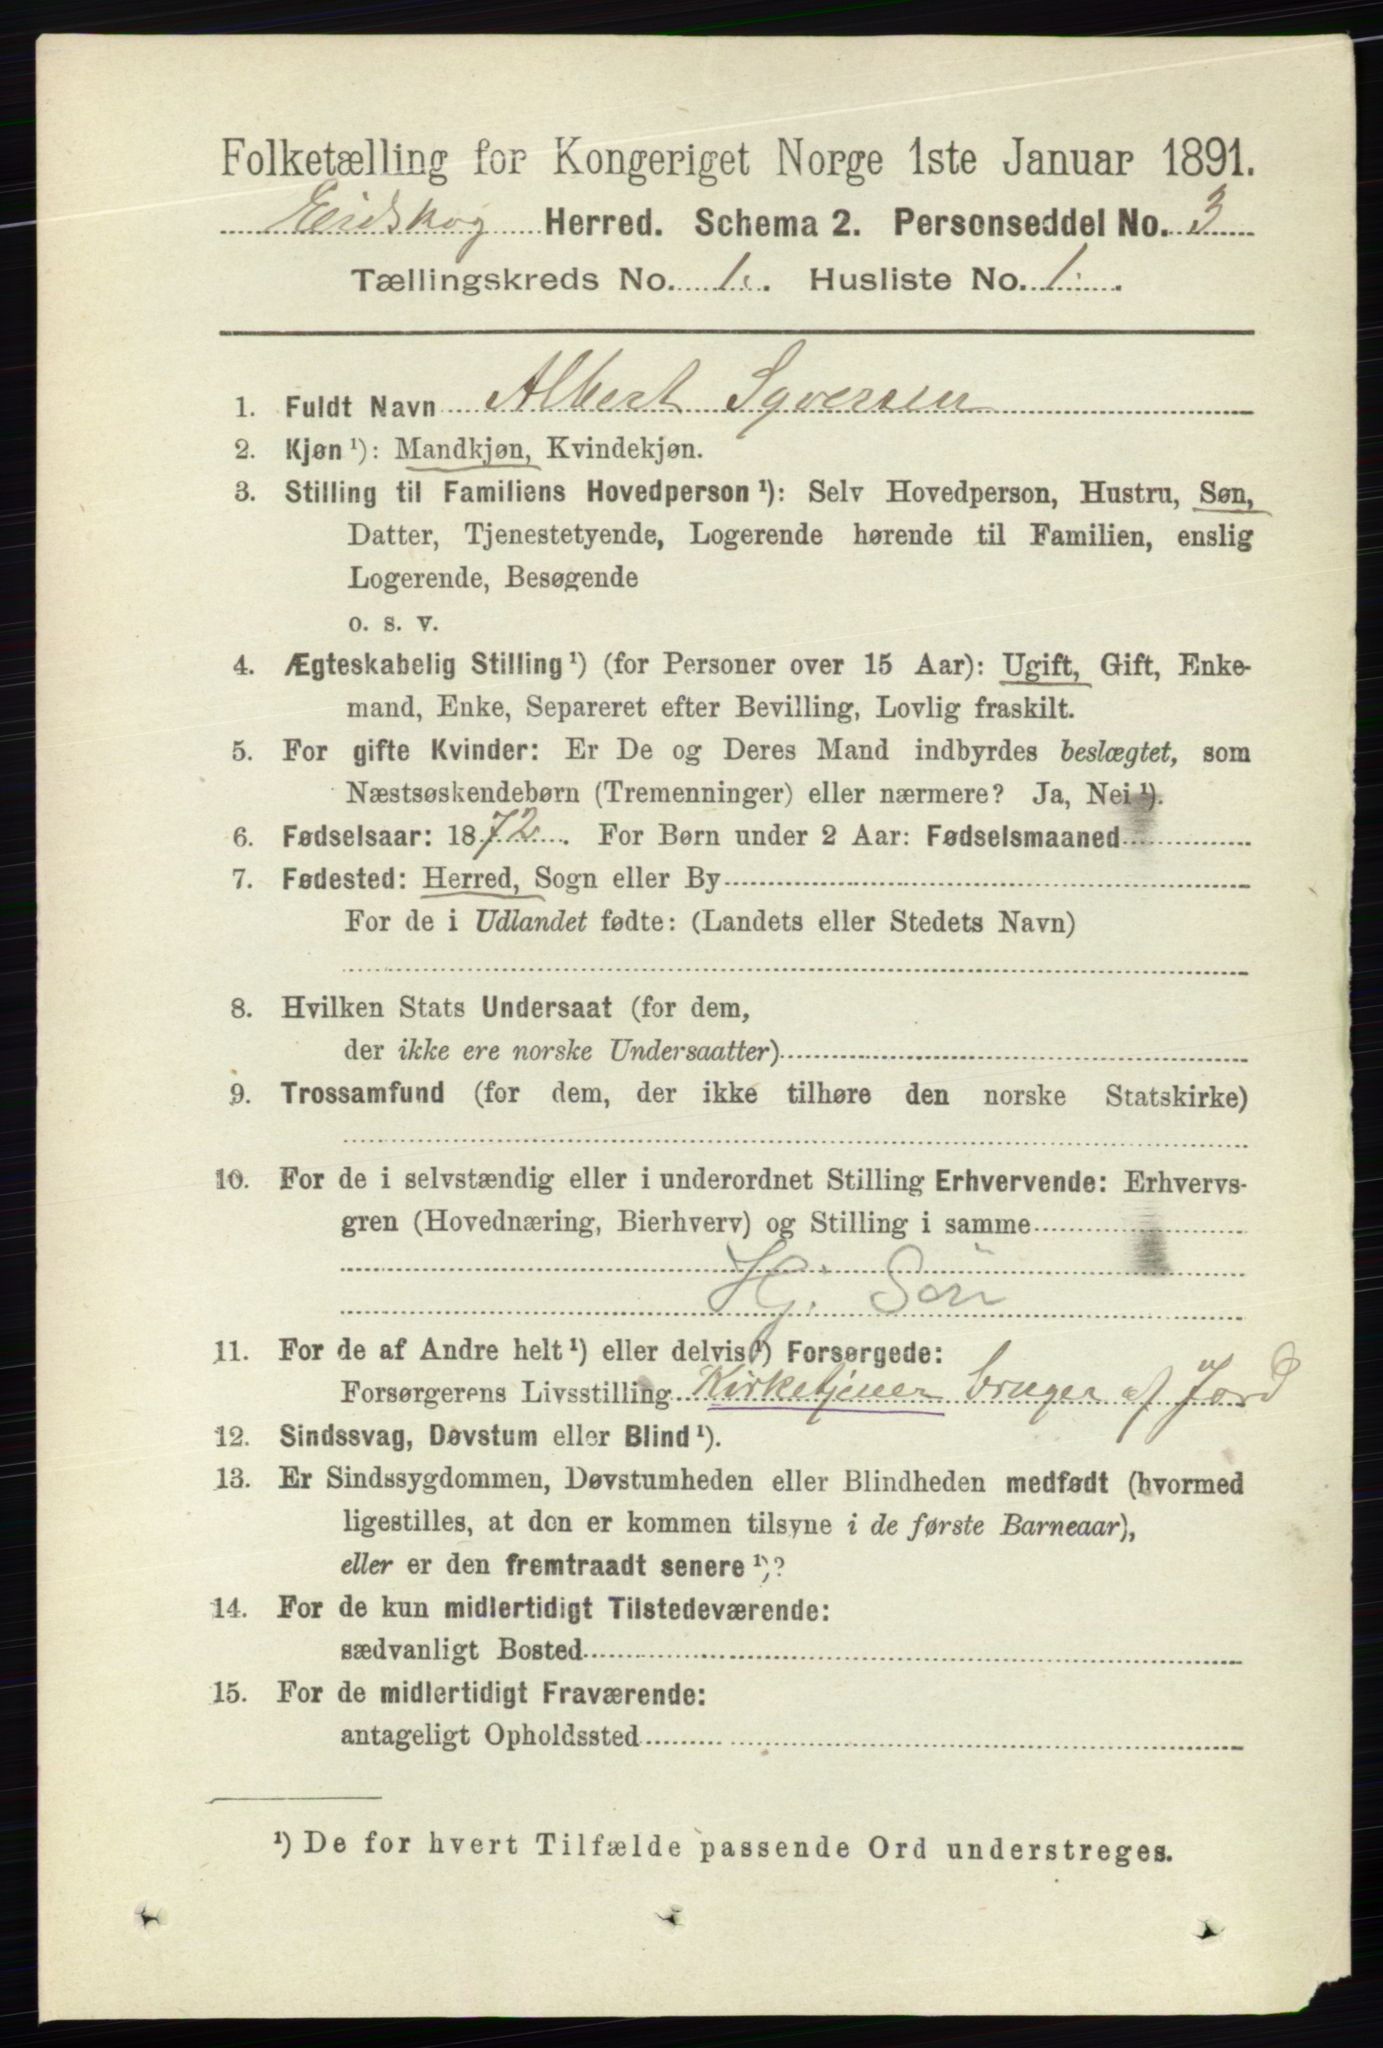 Folketælling for Kongeriget Norge 1ste Januar 1891.
Eidskog Herred. Schema 2. Personseddel No. 3
Tællingskreds No. 1. Husliste No. 1.
1. Fuldt Navn Albert Syversen
2. Kjøn ¹): Mandkjøn, Kvindekjøn.
3. Stilling til Familiens Hovedperson ¹): Selv Hovedperson, Hustru, Søn,
Datter, Tjenestetyende, Logerende hørende til Familien, enslig
Logerende, Besøgende
o. s. v.
4. Ægteskabelig Stilling ¹) (for Personer over 15 Aar): Ugift, Gift, Enke-
mand, Enke, Separeret efter Bevilling, Lovlig fraskilt.
5. For gifte Kvinder: Er De og Deres Mand indbyrdes beslægtet, som
Næstsøskendebørn (Tremenninger) eller nærmere? Ja, Nei ¹).
6. Fødselsaar: 1872. For Børn under 2 Aar: Fødselsmaaned
7. Fødested: Herred, Sogn eller By
For de i Udlandet fødte: (Landets eller Stedets Navn)
8. Hvilken Stats Undersaat (for dem,
der ikke ere norske Undersaatter)
9. Trossamfund (for dem, der ikke tilhøre den norske Statskirke)
10. For de i selvstændig eller i underordnet Stilling Erhvervende: Erhvervs-
gren (Hovednæring, Bierhverv) og Stilling i samme
Hj. Søn
11. For de af Andre helt ¹) eller delvis ¹) Forsørgede:
Forsørgerens Livsstilling Kirketjener bruger af Jord
12. Sindssvag, Døvstum eller Blind ¹).
13. Er Sindssygdommen, Døvstumheden eller Blindheden medfødt (hvormed
ligestilles, at den er kommen tilsyne i de første Barneaar),
eller er den fremtraadt senere ¹)?
14. For de kun midlertidigt Tilstedeværende:
sædvanligt Bosted
15. For de midlertidigt Fraværende:
antageligt Opholdssted
¹) De for hvert Tilfælde passende Ord understreges.